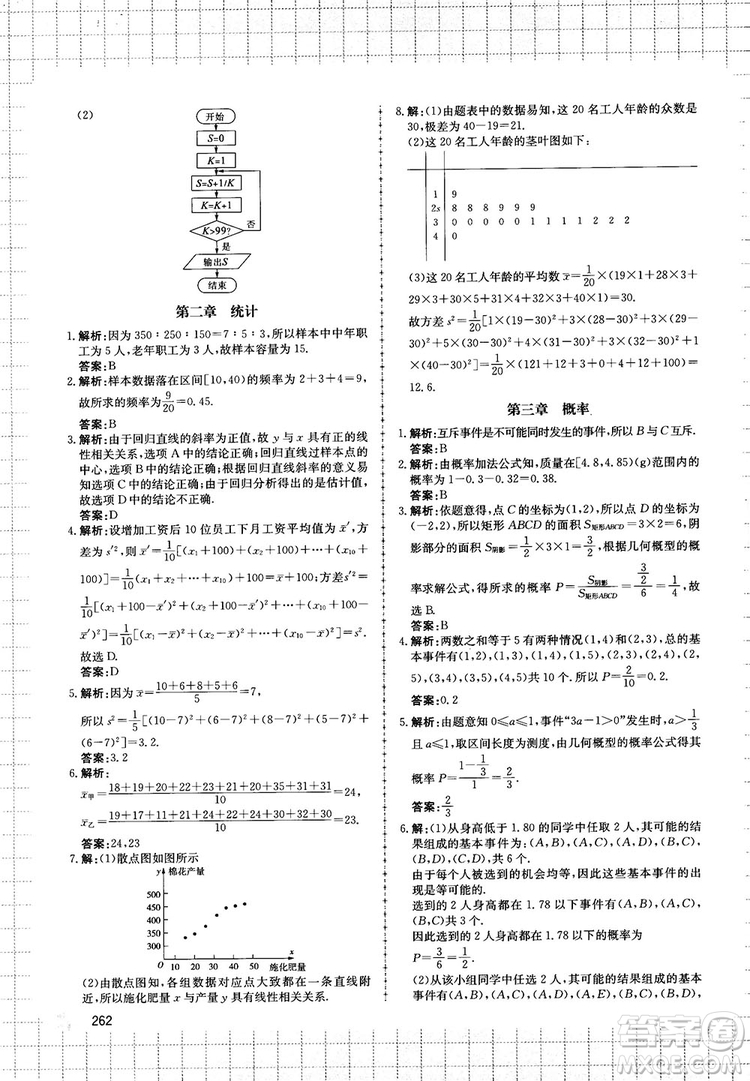 (2)
开始
S=0
K=1
S=S+1/K
K=K+1
否
K>99?
是
输出S
结束
第二章 统计
1. 解析:因为 350∶250∶150=7∶5∶3,所以样本中中年职
工为 5 人,老年职工为 3 人,故样本容量为 15.
答案:B
2. 解析:样本数据落在区间[10,40)的频率为 2+3+4=9,
故所求的频率为 9/20=0.45.
答案:B
3. 解析:由于回归直线的斜率为正值,故 y 与 x 具有正的线
性相关关系,选项 A 中的结论正确;回归直线过样本点的
中心,选项 B 中的结论正确;根据回归直线斜率的意义易
知选项 C 中的结论正确;由于回归分析得出的是估计值,
故选项 D 中的结论不正确.
答案:D
4. 解析:设增加工资后 10 位员工下月工资平均值为 x̄′,方
差为 s′²,则 x̄′=1/10[(x₁+100)+(x₂+100)+…+(x₁₀+
100)]=1/10(x₁+x₂+…+x₁₀)+100=x̄+100;方差 s′²=
1/10[(x₁+100-x̄′)²+(x₂+100-x̄′)²+…+(x₁₀+100-
x̄′)²]=1/10[(x₁-x̄)²+(x₂-x̄)²+…+(x₁₀-x̄)²]=s².
故选 D.
答案:D
5. 解析:因为 x̄=(10+6+8+5+6)/5=7,
所以 s²=1/5[(10-7)²+(6-7)²+(8-7)²+(5-7)²+
(6-7)²]=3.2.
答案:3.2
6. 解析:
x̄甲=(18+19+20+22+23+21+20+35+31+31)/10=24,
x̄乙=(19+17+11+21+24+22+24+30+32+30)/10=23.
答案:24,23
7. 解:(1)散点图如图所示
y 棉花产量
500
450
400
350
300
O 10 20 30 40 50 60 施化肥量 x
(2)由散点图知,各组数据对应点大致都在一条直线附
近,所以施化肥量 x 与产量 y 具有线性相关关系.
262
8. 解:(1)由题表中的数据易知,这 20 名工人年龄的众数是
30,极差为 40-19=21.
(2)这 20 名工人年龄的茎叶图如下:
1 9
2s 8 8 8 9 9 9
3 0 0 0 0 0 1 1 1 1 2 2 2
4 0
(3)这 20 名工人年龄的平均数 x̄=1/20×(19×1+28×3+
29×3+30×5+31×4+32×3+40×1)=30.
故方差 s²=1/20[1×(19-30)²+3×(28-30)²+3×(29-
30)²+5×(30-30)²+4×(31-30)²+3×(32-30)²+1×
(40-30)²]=1/20×(121+12+3+0+4+12+100)=
12.6.
第三章 概率
1. 解析:互斥事件是不可能同时发生的事件,所以 B 与 C 互斥.
答案:B
2. 解析:由概率加法公式知,质量在[4.8,4.85)(g)范围内的
概率为 1-0.3-0.32=0.38.
答案:B
3. 解析:依题意得,点 C 的坐标为(1,2),所以点 D 的坐标为
(-2,2),所以矩形 ABCD 的面积 S矩形ABCD=3×2=6,阴
影部分的面积 S阴影=1/2×3×1=3/2,根据几何概型的概
率求解公式,得所求的概率 P=S阴影/S矩形ABCD=(3/2)/6=1/4,故
选 B.
答案:B
4. 解析:两数之和等于 5 有两种情况(1,4)和(2,3),总的基
本事件有(1,2),(1,3),(1,4),(1,5),(2,3),(2,4),(2,
5),(3,4),(3,5),(4,5)共 10 种.所以 P=2/10=0.2.
答案:0.2
5. 解析:由题意知 0≤a≤1,事件“3a-1>0”发生时,a>1/3
且 a≤1,取区间长度为测度,由几何概型的概率公式得其
概率 P=(1-1/3)/1=2/3.
答案:2/3
6. 解:(1)从身高低于 1.80 的同学中任取 2 人,其可能的结
果组成的基本事件为:(A,B),(A,C),(A,D),(B,C),
(B,D),(C,D),共 6 个.
由于每个人被选到的机会均等,因此这些基本事件的出
现是等可能的.
选到的 2 人身高都在 1.78 以下的事件有(A,B),(A,C),
(B,C)共 3 个.
因此选到的 2 人身高都在 1.78 以下的概率为
P=3/6=1/2.
(2)从该小组同学中任选 2 人,其可能的结果组成的基本
事件有(A,B),(A,C),(A,D),(A,E),(B,C),(B,D),
答案圈
MXQE.COM